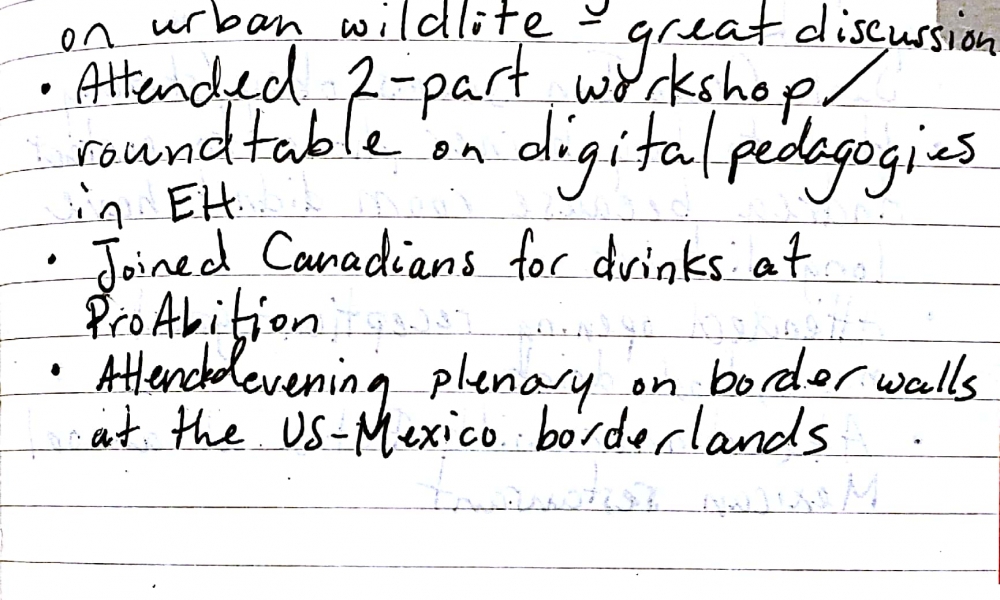 on urban wildlife - great discussion
• Attended 2-part workshop/
roundtable on digital pedagogies
in EH.
• Joined Canadians for drinks at
ProAbition
• Attended evening plenary on border walls
at the US-Mexico borderlands